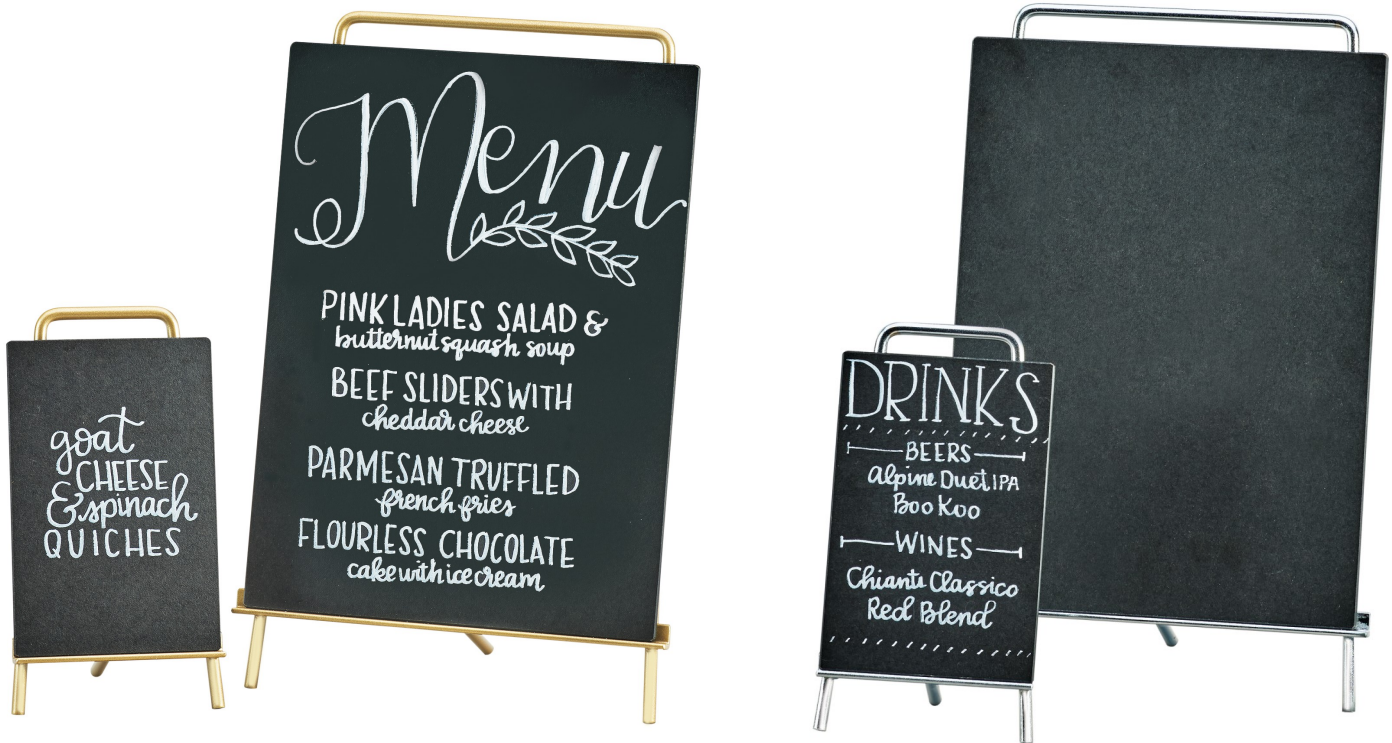 goat
CHEESE
& spinach
QUICHES
Menu
PINK LADIES SALAD &
butternut squash soup
BEEF SLIDERS WITH
cheddar cheese
PARMESAN TRUFFLED
french fries
FLOURLESS CHOCOLATE
cake with ice cream
DRINKS
BEERS
Alpine Duet IPA
Boo Koo
WINES
Chianti Classico
Red Blend